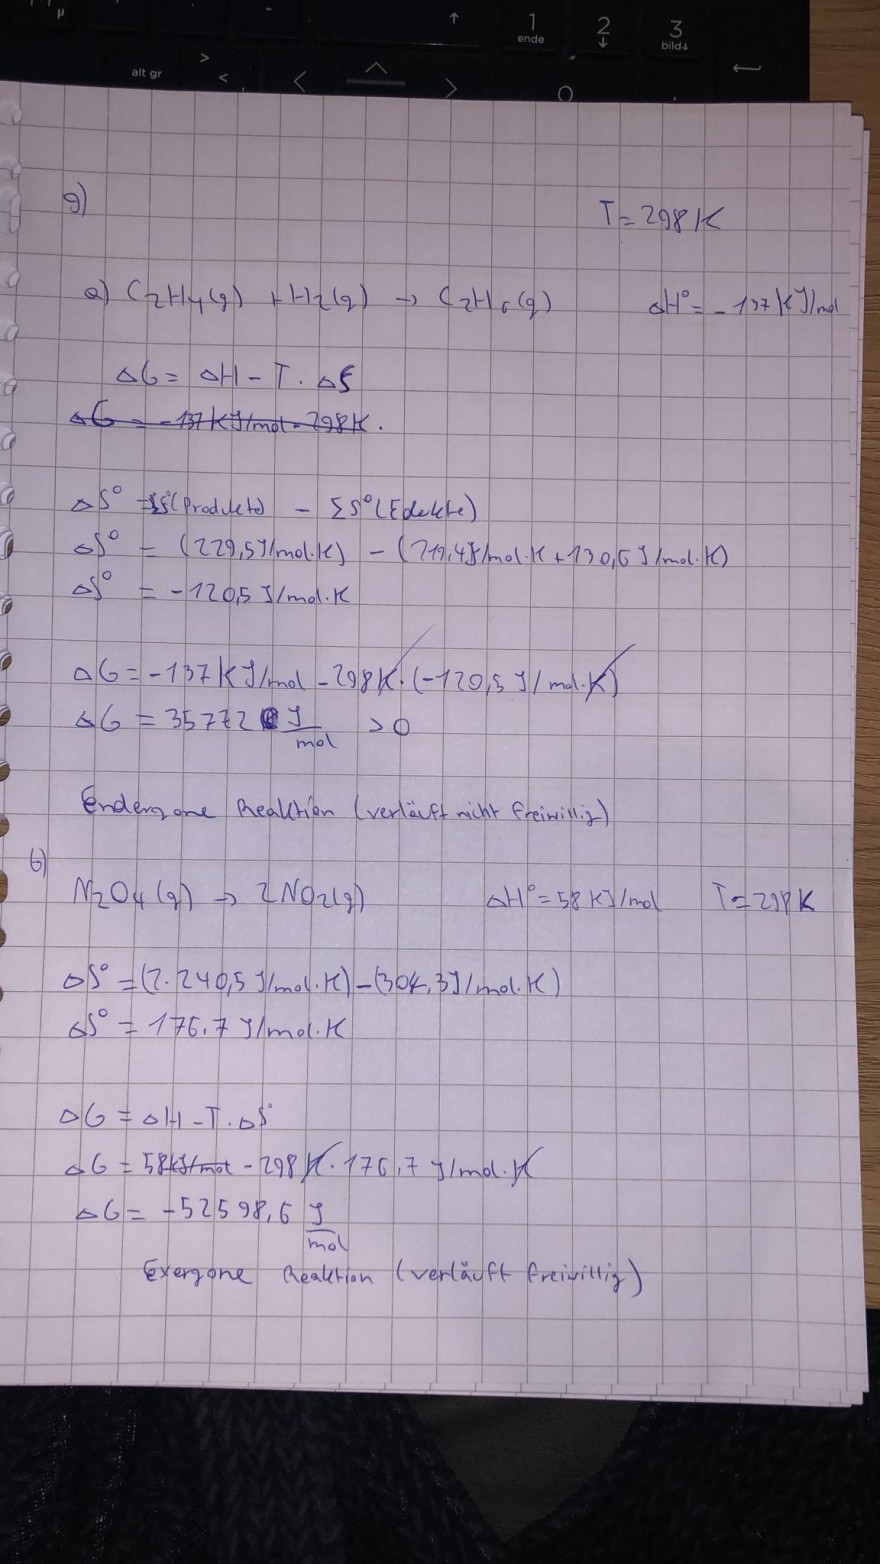 µ
1
ende
2
↓
3
bild↓
alt gr
>
<
9)
T = 298 K
a) C2H4(g) + H2(g) → C2H6(g) ΔH° = -137 KJ/mol
ΔG = ΔH - T . ΔS
ΔG = -137 KJ/mol - 298K .
ΔS° = ΣS°(Produkte) - ΣS°(Edukte)
ΔS° = (229,5 J/mol.K) - (219,4 J/mol.K + 130,6 J/mol.K)
ΔS° = -120,5 J/mol.K
ΔG = -137 KJ/mol - 298K . (-120,5 J/mol.K)
ΔG = 35772 J/mol > 0
Endergone Reaktion (verläuft nicht freiwillig)
b)
N2O4(g) → 2NO2(g) ΔH° = 58 KJ/mol T = 298 K
ΔS° = (2. 240,5 J/mol.K) - (304,3 J/mol.K)
ΔS° = 176,7 J/mol.K
ΔG = ΔH - T . ΔS°
ΔG = 58 KJ/mol - 298 K . 176,7 J/mol.K
ΔG = -52598,6 J/mol
Exergone Reaktion (verläuft freiwillig)